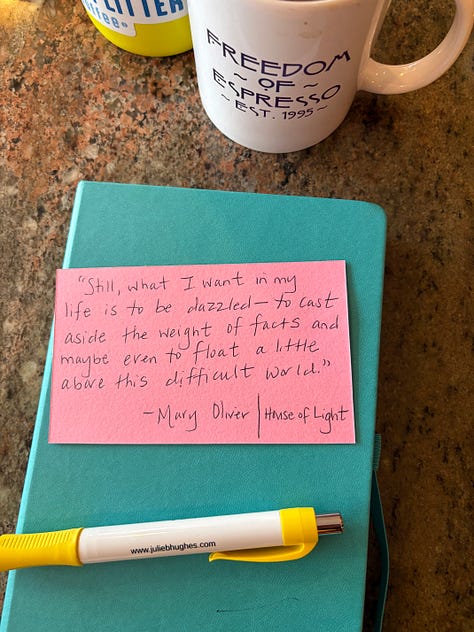 LITTER
FREEDOM
~ OF ~
ESPRESSO
~ EST. 1995 ~
"Still, what I want in my
life is to be dazzled — to cast
aside the weight of facts and
maybe even to float a little
above this difficult world."
— Mary Oliver | House of Light
www.juliebhughes.com